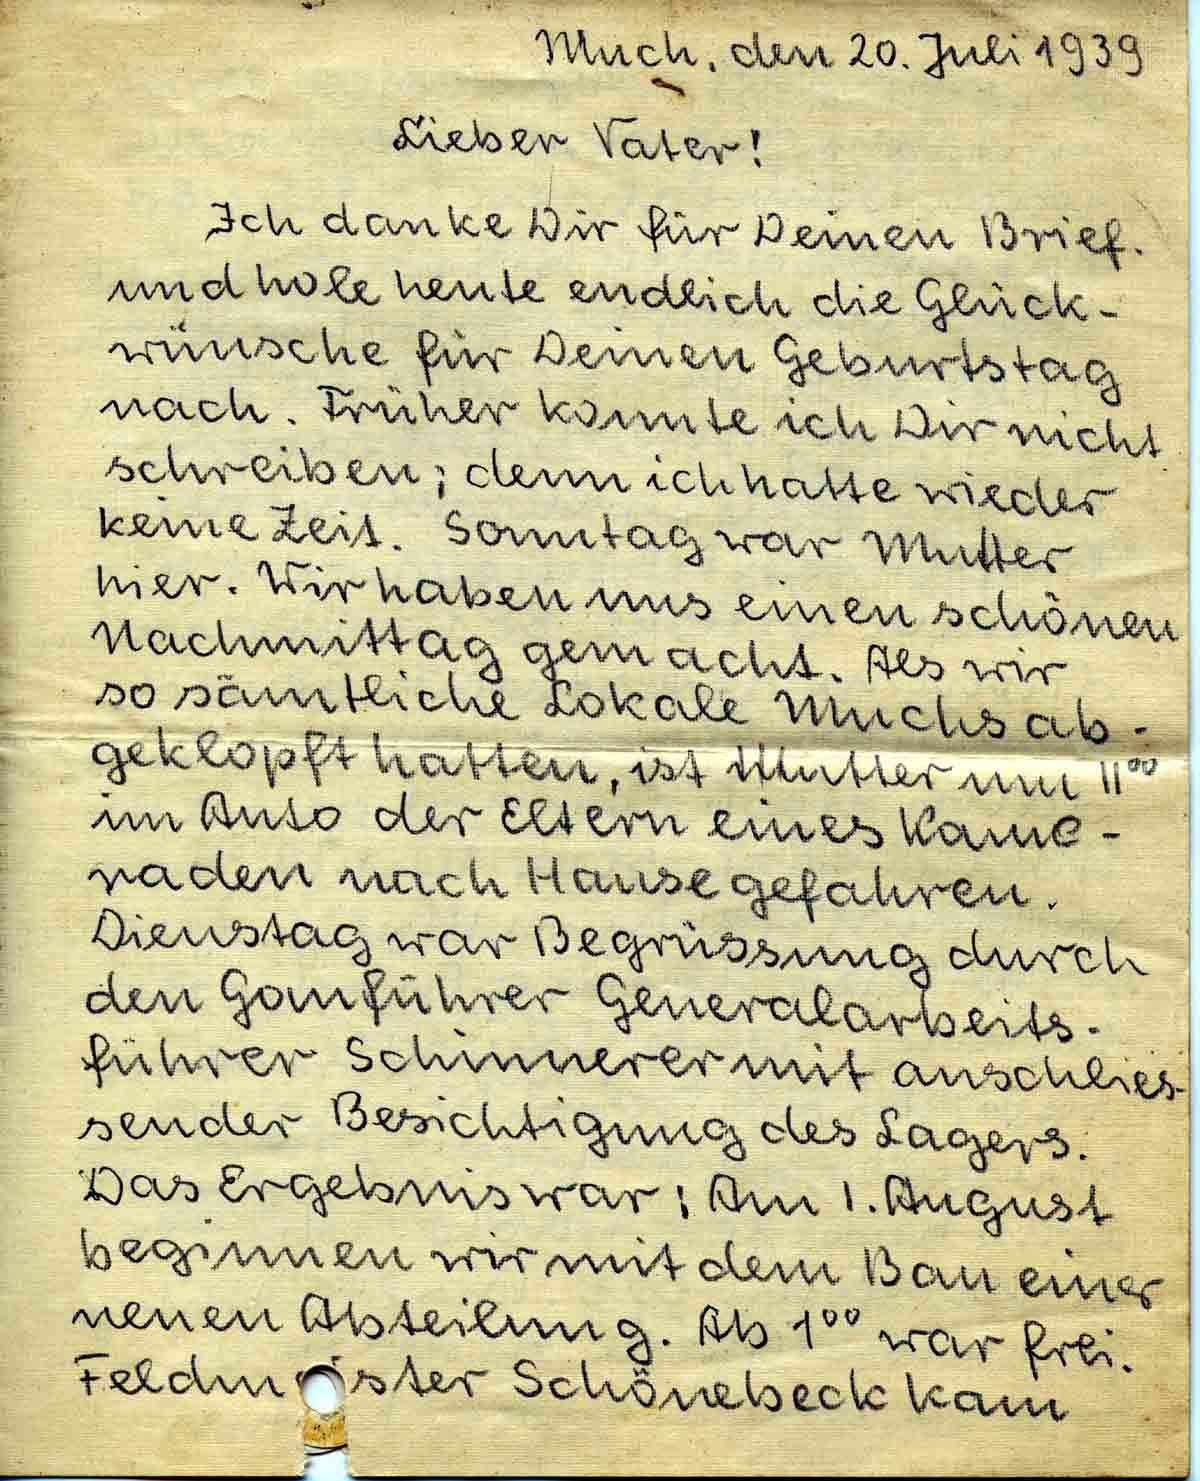 Much, den 20. Juli 1939
Lieber Vater!
Ich danke Dir für Deinen Brief.
und hole heute endlich die Glück-
wünsche für Deinen Geburtstag
nach. Früher konnte ich Dir nicht
schreiben; denn ich hatte wieder
keine Zeit. Sonntag war Mutter
hier. Wir haben uns einen schönen
Nachmittag gemacht. Als wir
so sämtliche Lokale Muchs ab-
geklopft hatten, ist Mutter um 11⁰⁰
im Auto der Eltern eines Kame-
raden nach Hause gefahren.
Dienstag war Begrüssung durch
den Gauführer Generalarbeits-
führer Schinnerer mit anschlies-
sender Besichtigung des Lagers.
Das Ergebnis war: Am 1. August
beginnen wir mit dem Bau einer
neuen Abteilung. Ab 1⁰⁰ war frei.
Feldmeister Schönebeck kam